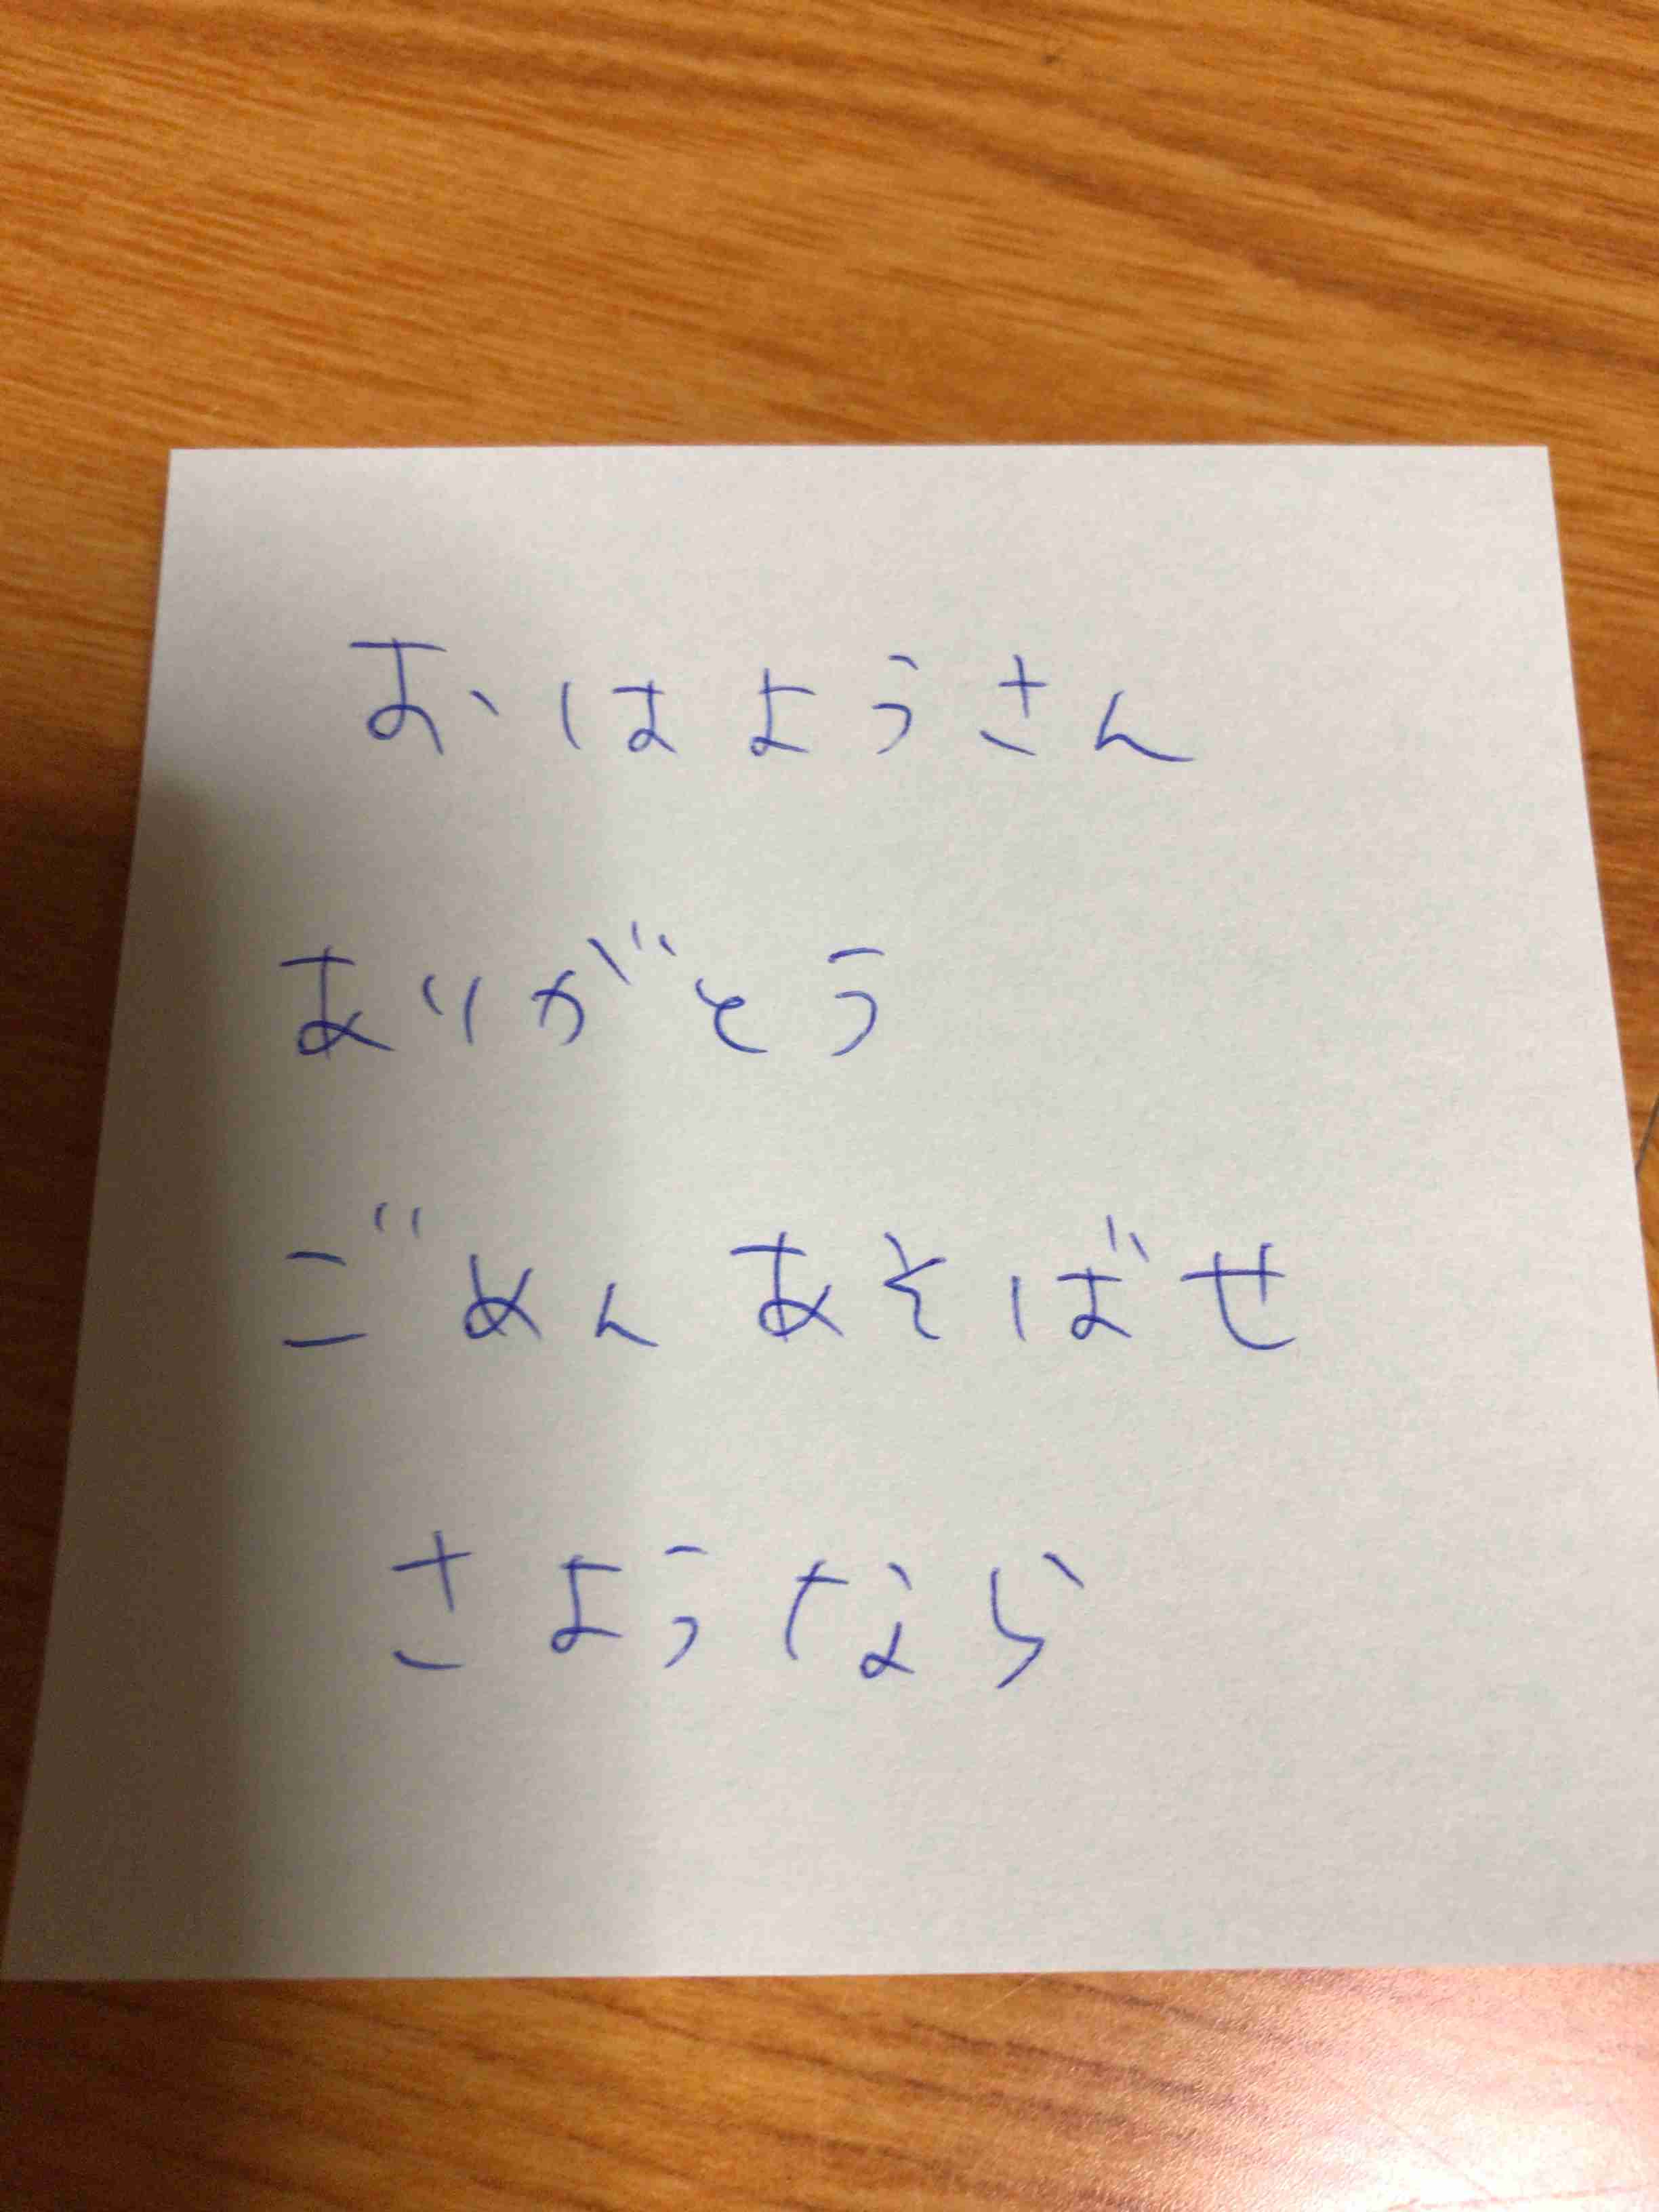 おはようさん
ありがとう
ごめんあそばせ
さようなら